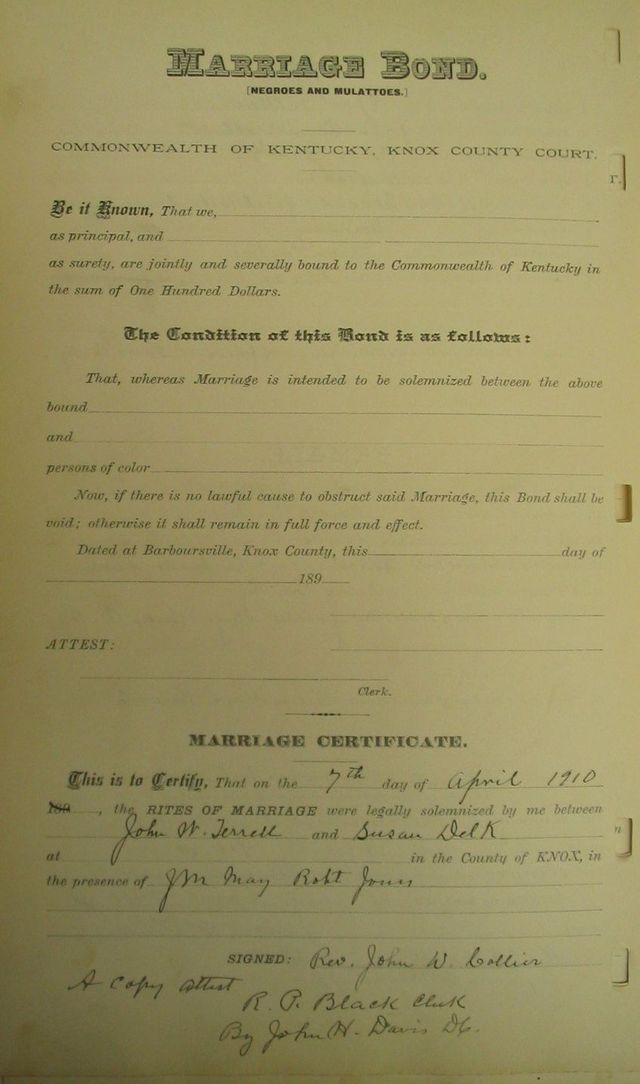 MARRIAGE BOND.
[NEGROES AND MULATTOES.]
COMMONWEALTH OF KENTUCKY, KNOX COUNTY COURT.
Be it Known, That we,
as principal, and
as surety, are jointly and severally bound to the Commonwealth of Kentucky in
the sum of One Hundred Dollars.
The Condition of this Bond is as follows:
That, whereas Marriage is intended to be solemnized between the above
bound
and
persons of color
Now, if there is no lawful cause to obstruct said Marriage, this Bond shall be
void; otherwise it shall remain in full force and effect.
Dated at Barboursville, Knox County, this day of
189
ATTEST:
Clerk.
MARRIAGE CERTIFICATE.
This is to Certify, That on the 7th day of April 1910
189 , the RITES OF MARRIAGE were legally solemnized by me between
John W. Terrell and Susan Delk
at in the County of KNOX, in
the presence of J M May Robt Jones
SIGNED: Rev. John W. Collier
A Copy attest
R. P. Black Clerk
By John H. Davis DC.